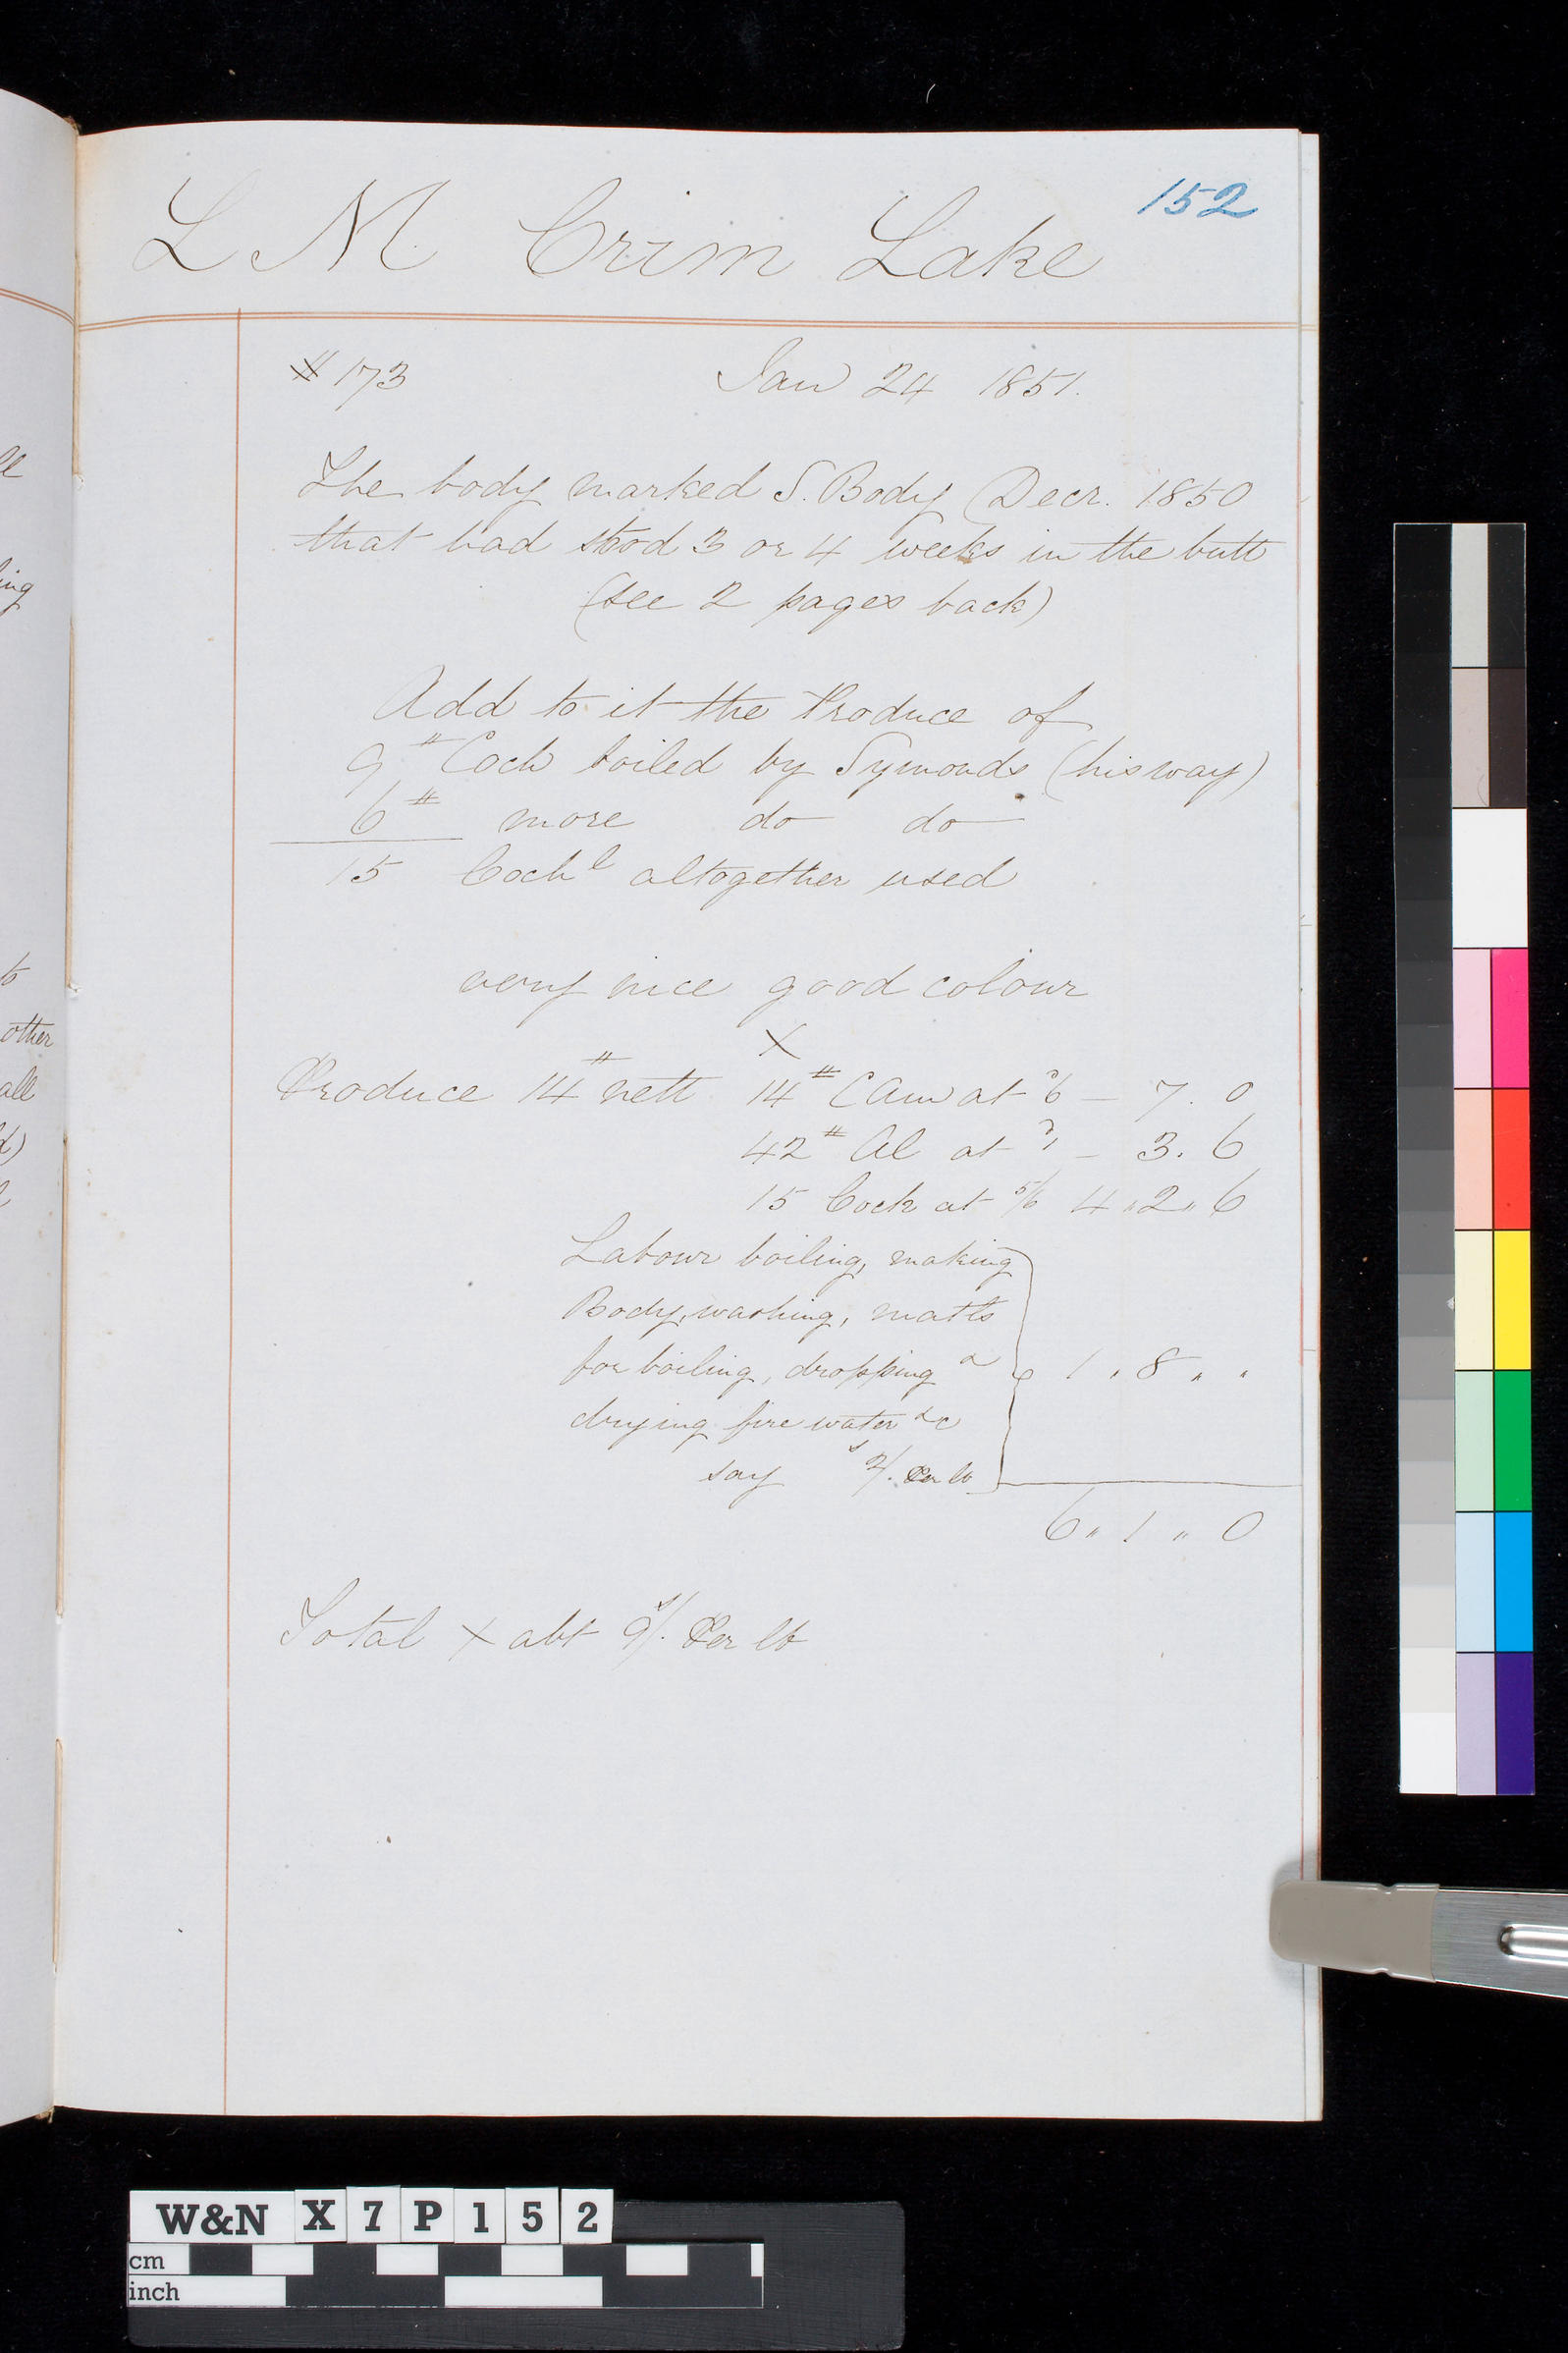 152
L M Crim Lake
# 173 Jan 24 1851.
The body marked S. Body Decr. 1850
that had stood 3 or 4 weeks in the butt
(see 2 pages back)
Add to it the Produce of
9 # Coch boiled by Symonds (his way)
6 # more do do
15 Cochl altogether used
very nice good colour
X
Produce 14 # nett 14 # C Am at 6 – 7. 0
42 # Al at 1 – 3. 6
15 Coch at 5/6 4 " 2 " 6
Labour boiling, making
Body, washing, matls
for boiling, dropping &
drying fire water &c
say 2/. Per lb
1 " 8 " "
6 " 1 " 0
Total X abt 9/. Per lb
ll
ing
to
other
all
d)
W&N X 7 P 1 5 2
cm
inch